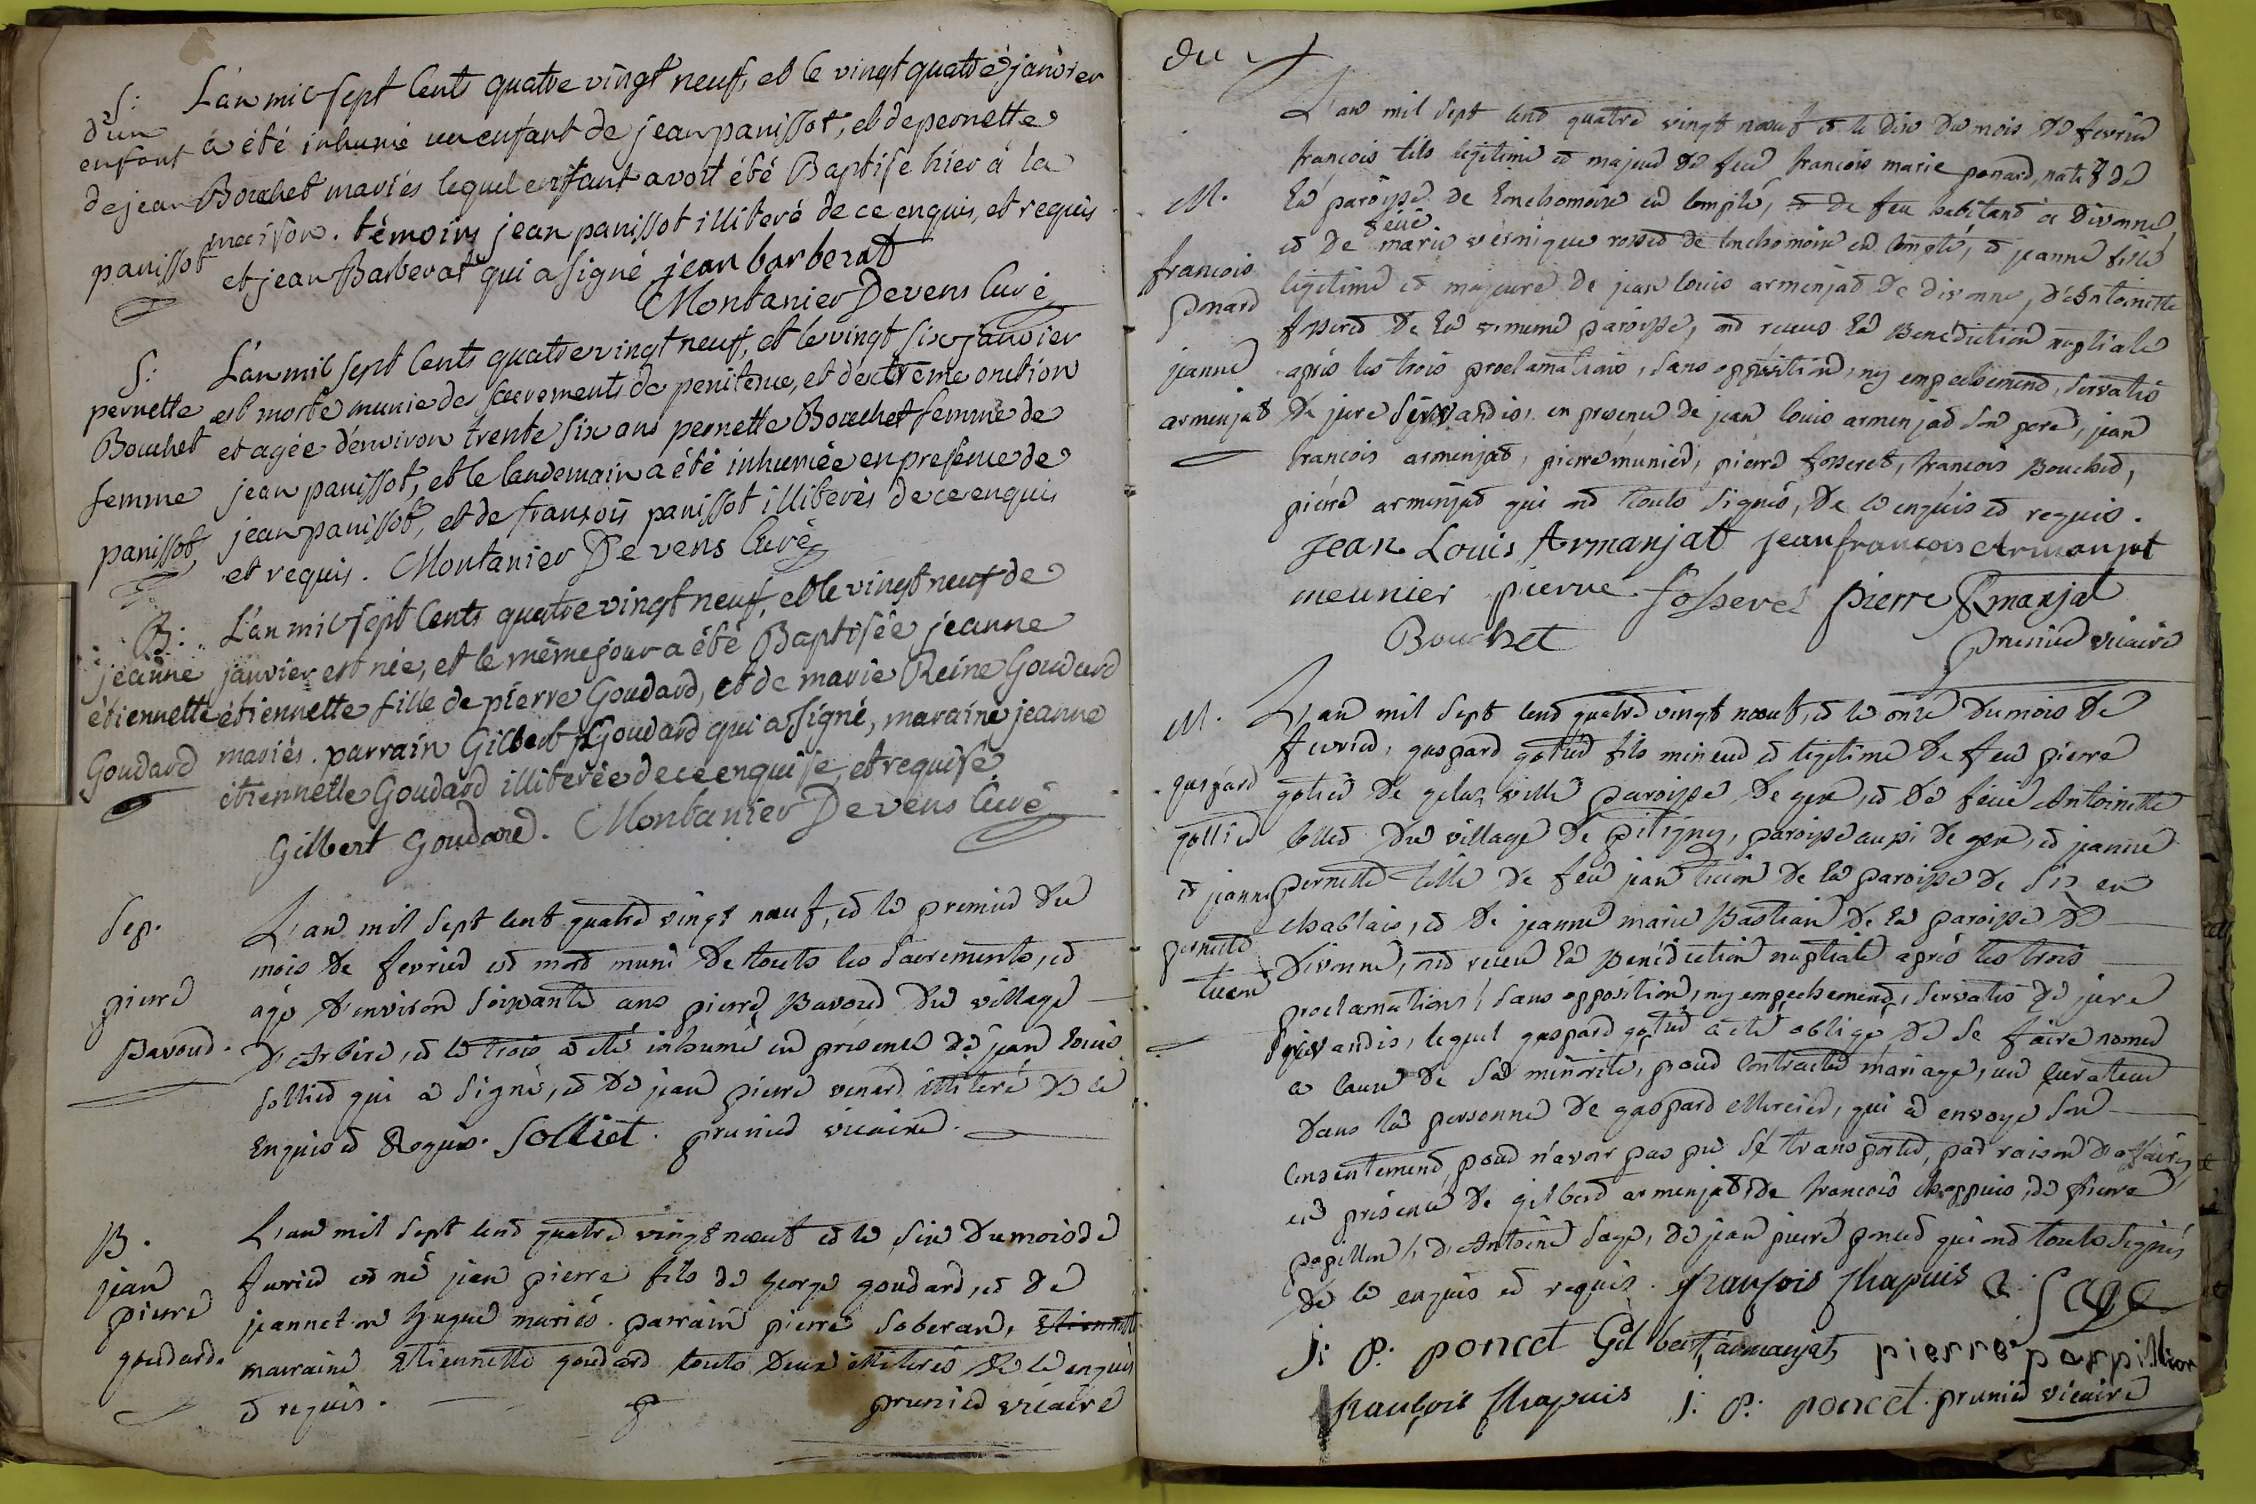 S:
d'un
enfant
de jean
panissot
L'an mil sept Cents quatre vingt neuf, et le vingt quatre janvier
a été inhumé un enfant de jean panissot, et de pernette
Bouchet mariés lequel enfant avoit été Baptisé hier à la
maison. témoins jean panissot illiteré de ce enquis, et requis
et jean Barberat qui a signé jean barberat
Montanier Devens Curé
S:
pernette
Bouchet
femme
panissot
L'an mil sept Cents quatre vingt neuf, et le vingt six janvier
est morte munie de sacrements de penitence, et dextrême onction
et agée d'environ trente six ans pernette Bouchet femme de
jean panissot, et le landemain a été inhumée en presence de
jean panissot, et de françois panissot illiterés de ce enquis
et requis. Montanier Devens Curé
B:
jeanne
étiennette
Goudard
L'an mil sept Cents quatre vingt neuf, et le vingt neuf de
janvier est née, et le même jour a été Baptisée jeanne
étiennette fille de pierre Goudard, et de marie Reine Goudard
mariés. parrain Gilbert Goudard qui a signé, maraine jeanne
étiennette Goudard illiterée de ce enquise, et requise
Gilbert Goudard. Montanier Devens Curé
Sep.
pierre
Bavoud.
L'an mil sept cent quatre vingt neuf, et le premier du
mois de fevrier est mort muni de touts les sacrements, et
agé d'environ soixante ans pierre Bavoud du village
d'Arbére, et le trois a été inhumé en présence de jean louis
solliet qui a signé, et de jean pierre venard illiteré de ce
enquis et Requis. Solliet. prunier vicaire.
B.
jean
pierre
goudard.
L'an mil sept cent quatre vingt neuf et le six du mois de
fevrier est né jean pierre fils de george goudard, et de
jeanneton hugue mariés. parrain pierre soberan, Etiennette
marraine Etiennette goudard touts deux illiterés de ce enquis
et requis. prunier vicaire
du
M.
françois
ponard
jeanne
armenjat
L'an mil sept cent quatre vingt neuf et le dix du mois de fevrier
françois fils legitime et majeur de feu françois marie ponard, natif de
la paroisse de lonchomoix en compté, et de feu habitant a divonne,
feüe
et de marie vésnique rosset de lonchomoix en comptè, et jeanne fille
legitime et majeure de jean louis armenjat de divonne, d'Antoinette
fosseret de la même paroisse, ont receus la Benédiction nuptiale
aprés les trois proclamations, sans opposition, ny empechement, servatis
de jure servandis, en presence de jean louis armenjat son pere, jean
francois armenjat, pierre munier, pierre fosseret, françois Bouchet,
pierre armenjat qui ont touts signés, de ce enquis et requis.
jean Louis Armanjat jean francois Armanjat
meunier pierre fosseret pierre Armanjat
Bouchet prunier vicaire
M.
gaspard
gollied
et jeanne
pernette
L'an mil sept cent quatre vingt neuf, et le onze du mois de
fevrier, gaspard golied fils mineur et legitime de feu pierre
golied de gelaz ville paroisse de gex, et de feüe Antoinette
du village de pitigny, paroisse aussi de gex, et jeanne
pernette fille de feu jean de la paroisse de en
chablais, et de jeanne marie Bastian de la paroisse de
Divonne, ont receu la Bénédiction nuptiale aprés les trois
proclamations, sans opposition, ny empechement, servatis de jure
servandis, lequel gaspard golied a été obligé de se faire nomer
a cause de sa minorité, pour contracter mariage, un curateur
dans la personne de gaspard Mercier, qui a envoyé son
consentement, pour n'avoir pas pu se transporter, par raison d'affaires
en présence de gilbert armenjat, de françois chappuis, de pierre
papillon, d'Antoine sage, de jean pierre poncet qui ont touts signés
de ce enquis et requis. françois Chapuis a: Sage
j: p: poncet Gilbert, armanjat, pierre pappillion
françois Chapuis j: p: poncet. prunier vicaire